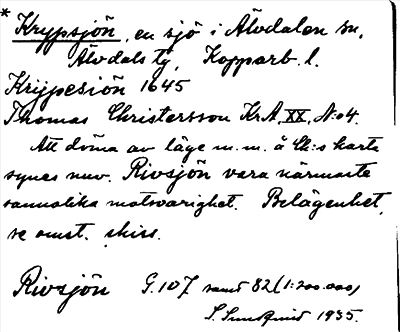 * Krypsjön, en sjö i Älvdalen sn,
Älvdals tg, Kopparb. l.
Krijpesiön 1645
Thomas Christersson KrA, XX, N:o 4.
Att döma av läge m.m. å Ch:s karta
synes nuv. Rivsjön vara närmaste
sannolika motsvarighet. Belägenhet,
se omst. skiss.
Rivsjön G. 107 samt 82 (1:200.000)
S. Sundquist 1935.